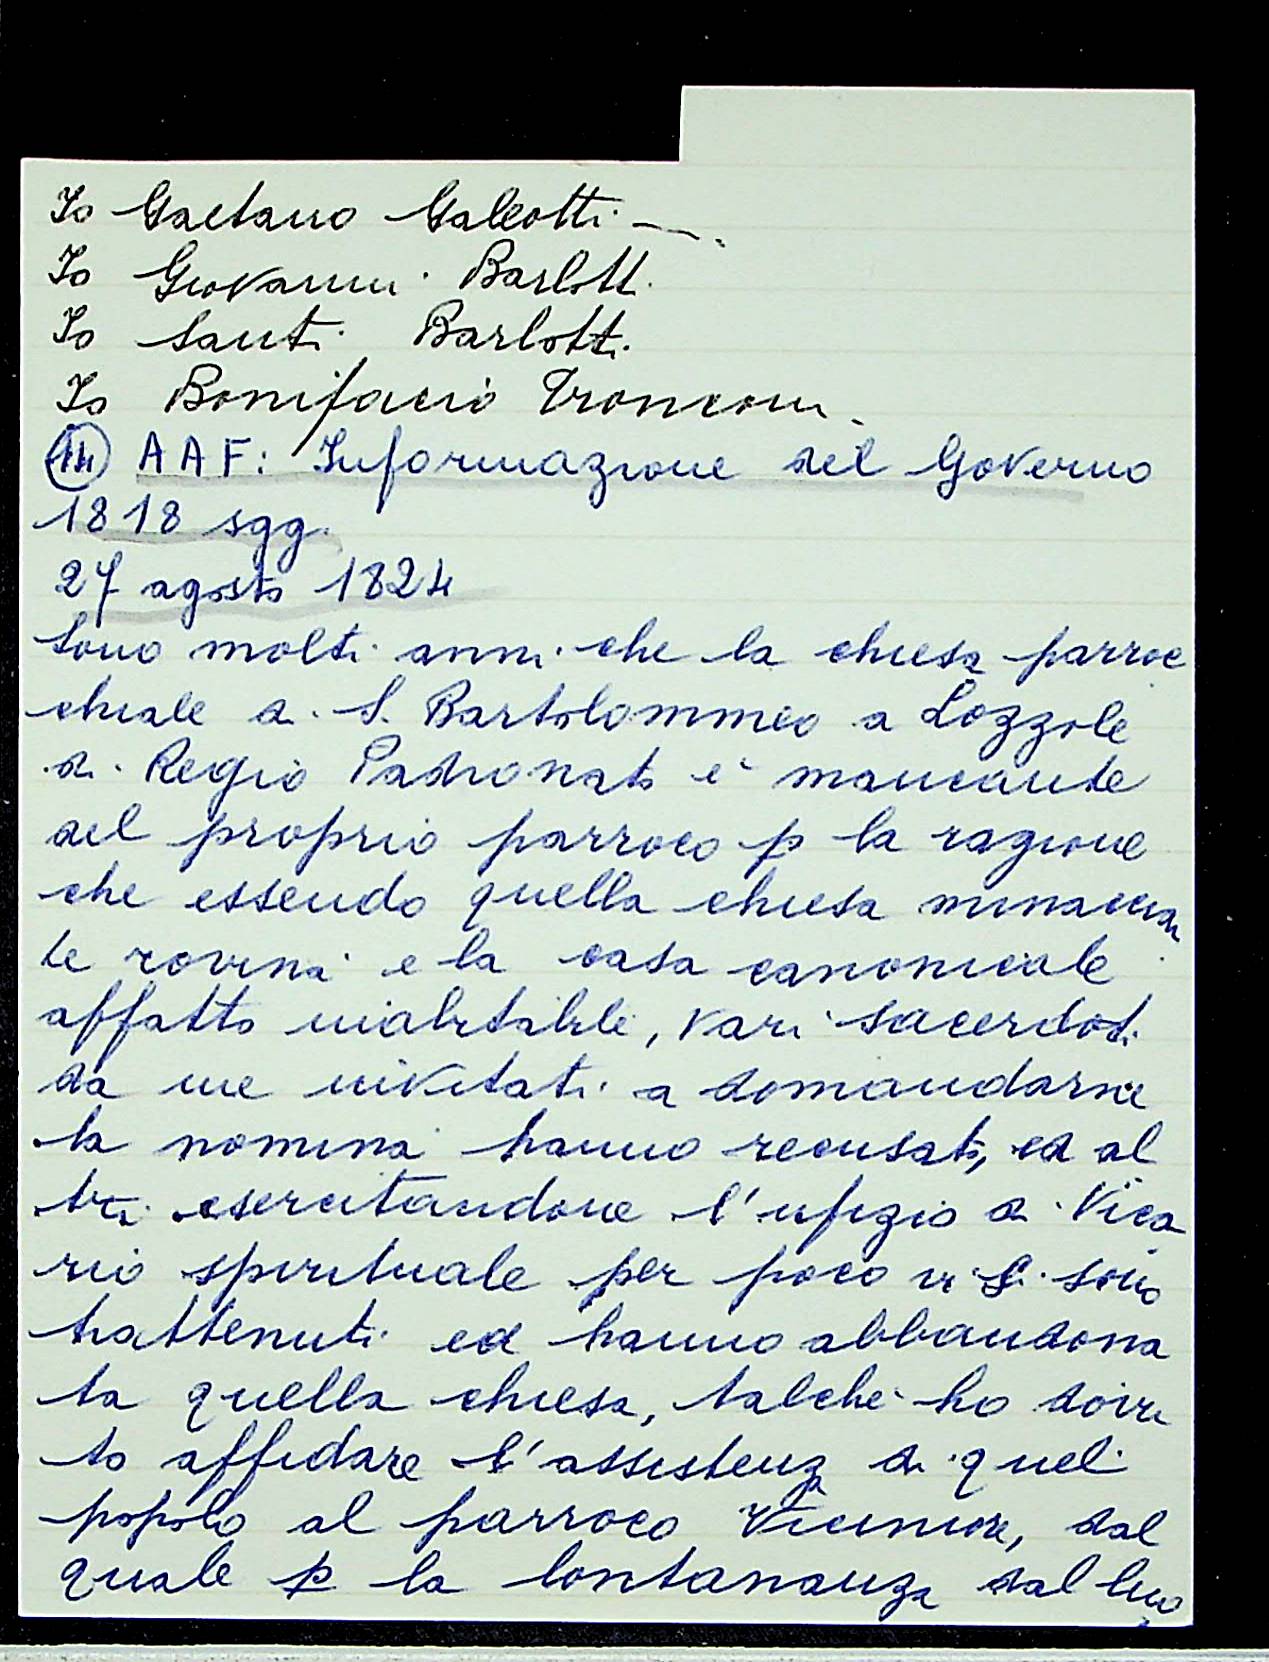 Io Gaetano Galeotti —.
Io Giovanni Barlotti.
Io Santi Barlotti.
Io Bonifacio Tronconi.
14 AAF: Informazione del Governo
1818 sgg.
27 agosto 1824
Sono molti anni che la chiesa parroc
chiale di S. Bartolommeo a Lozzole
di Regio Padronato è mancante
del proprio parroco p la ragione
che essendo quella chiesa minaccian
te rovina e la casa canonicale
affatto inabitabile, vari sacerdoti
da me invitati a domandarne
la nomina hanno recusato, ed al
tri esercitandone l'ufizio di Vica
rio spirituale per poco vi si sono
trattenuti ed hanno abbandona
ta quella chiesa, talché ho dovu
to affidare l'assistenza di quel
popolo al parroco Viciniore, dal
quale p la lontananza dal luo